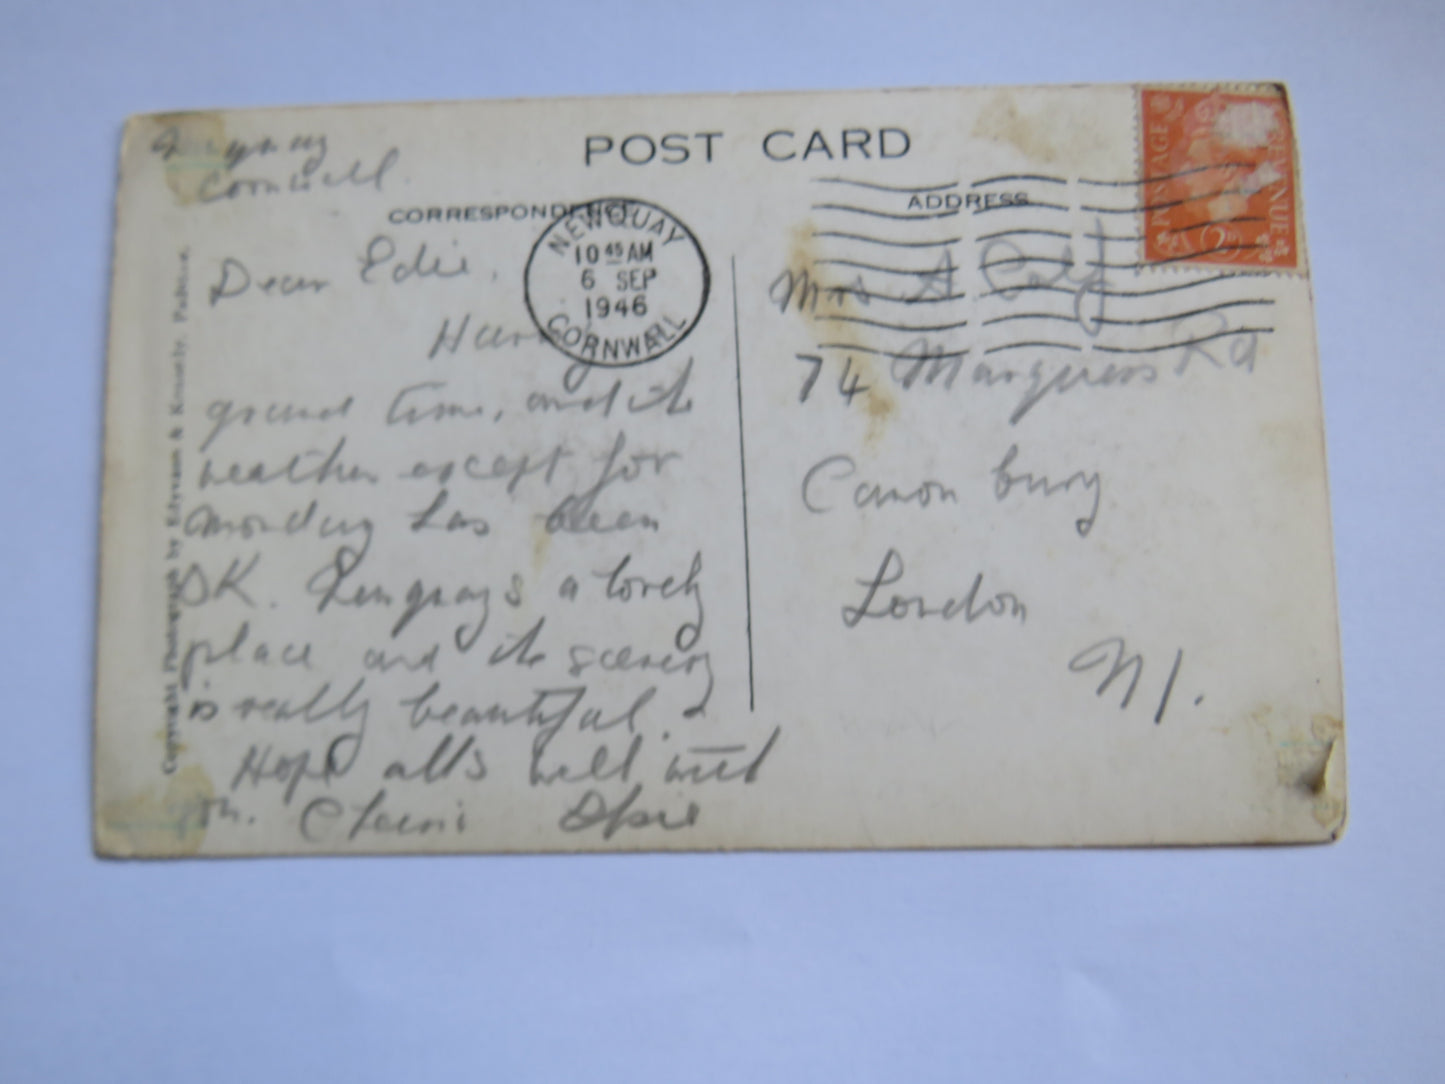 POST CARD
Cornwall
CORRESPONDENCE
ADDRESS
NEWQUAY
10 45 AM
6 SEP
1946
CORNWALL
POSTAGE
REVENUE
Dear Edie,
Having
grand time, and the
weather except for
Monday has been
OK. a lovely
place and the scenery
is really beautiful.
Hope all's well with
you. Cheerio Elsie
Mrs A
74 Marquess Rd
Canonbury
London
N1.
Copyright Photograph by Padstow.